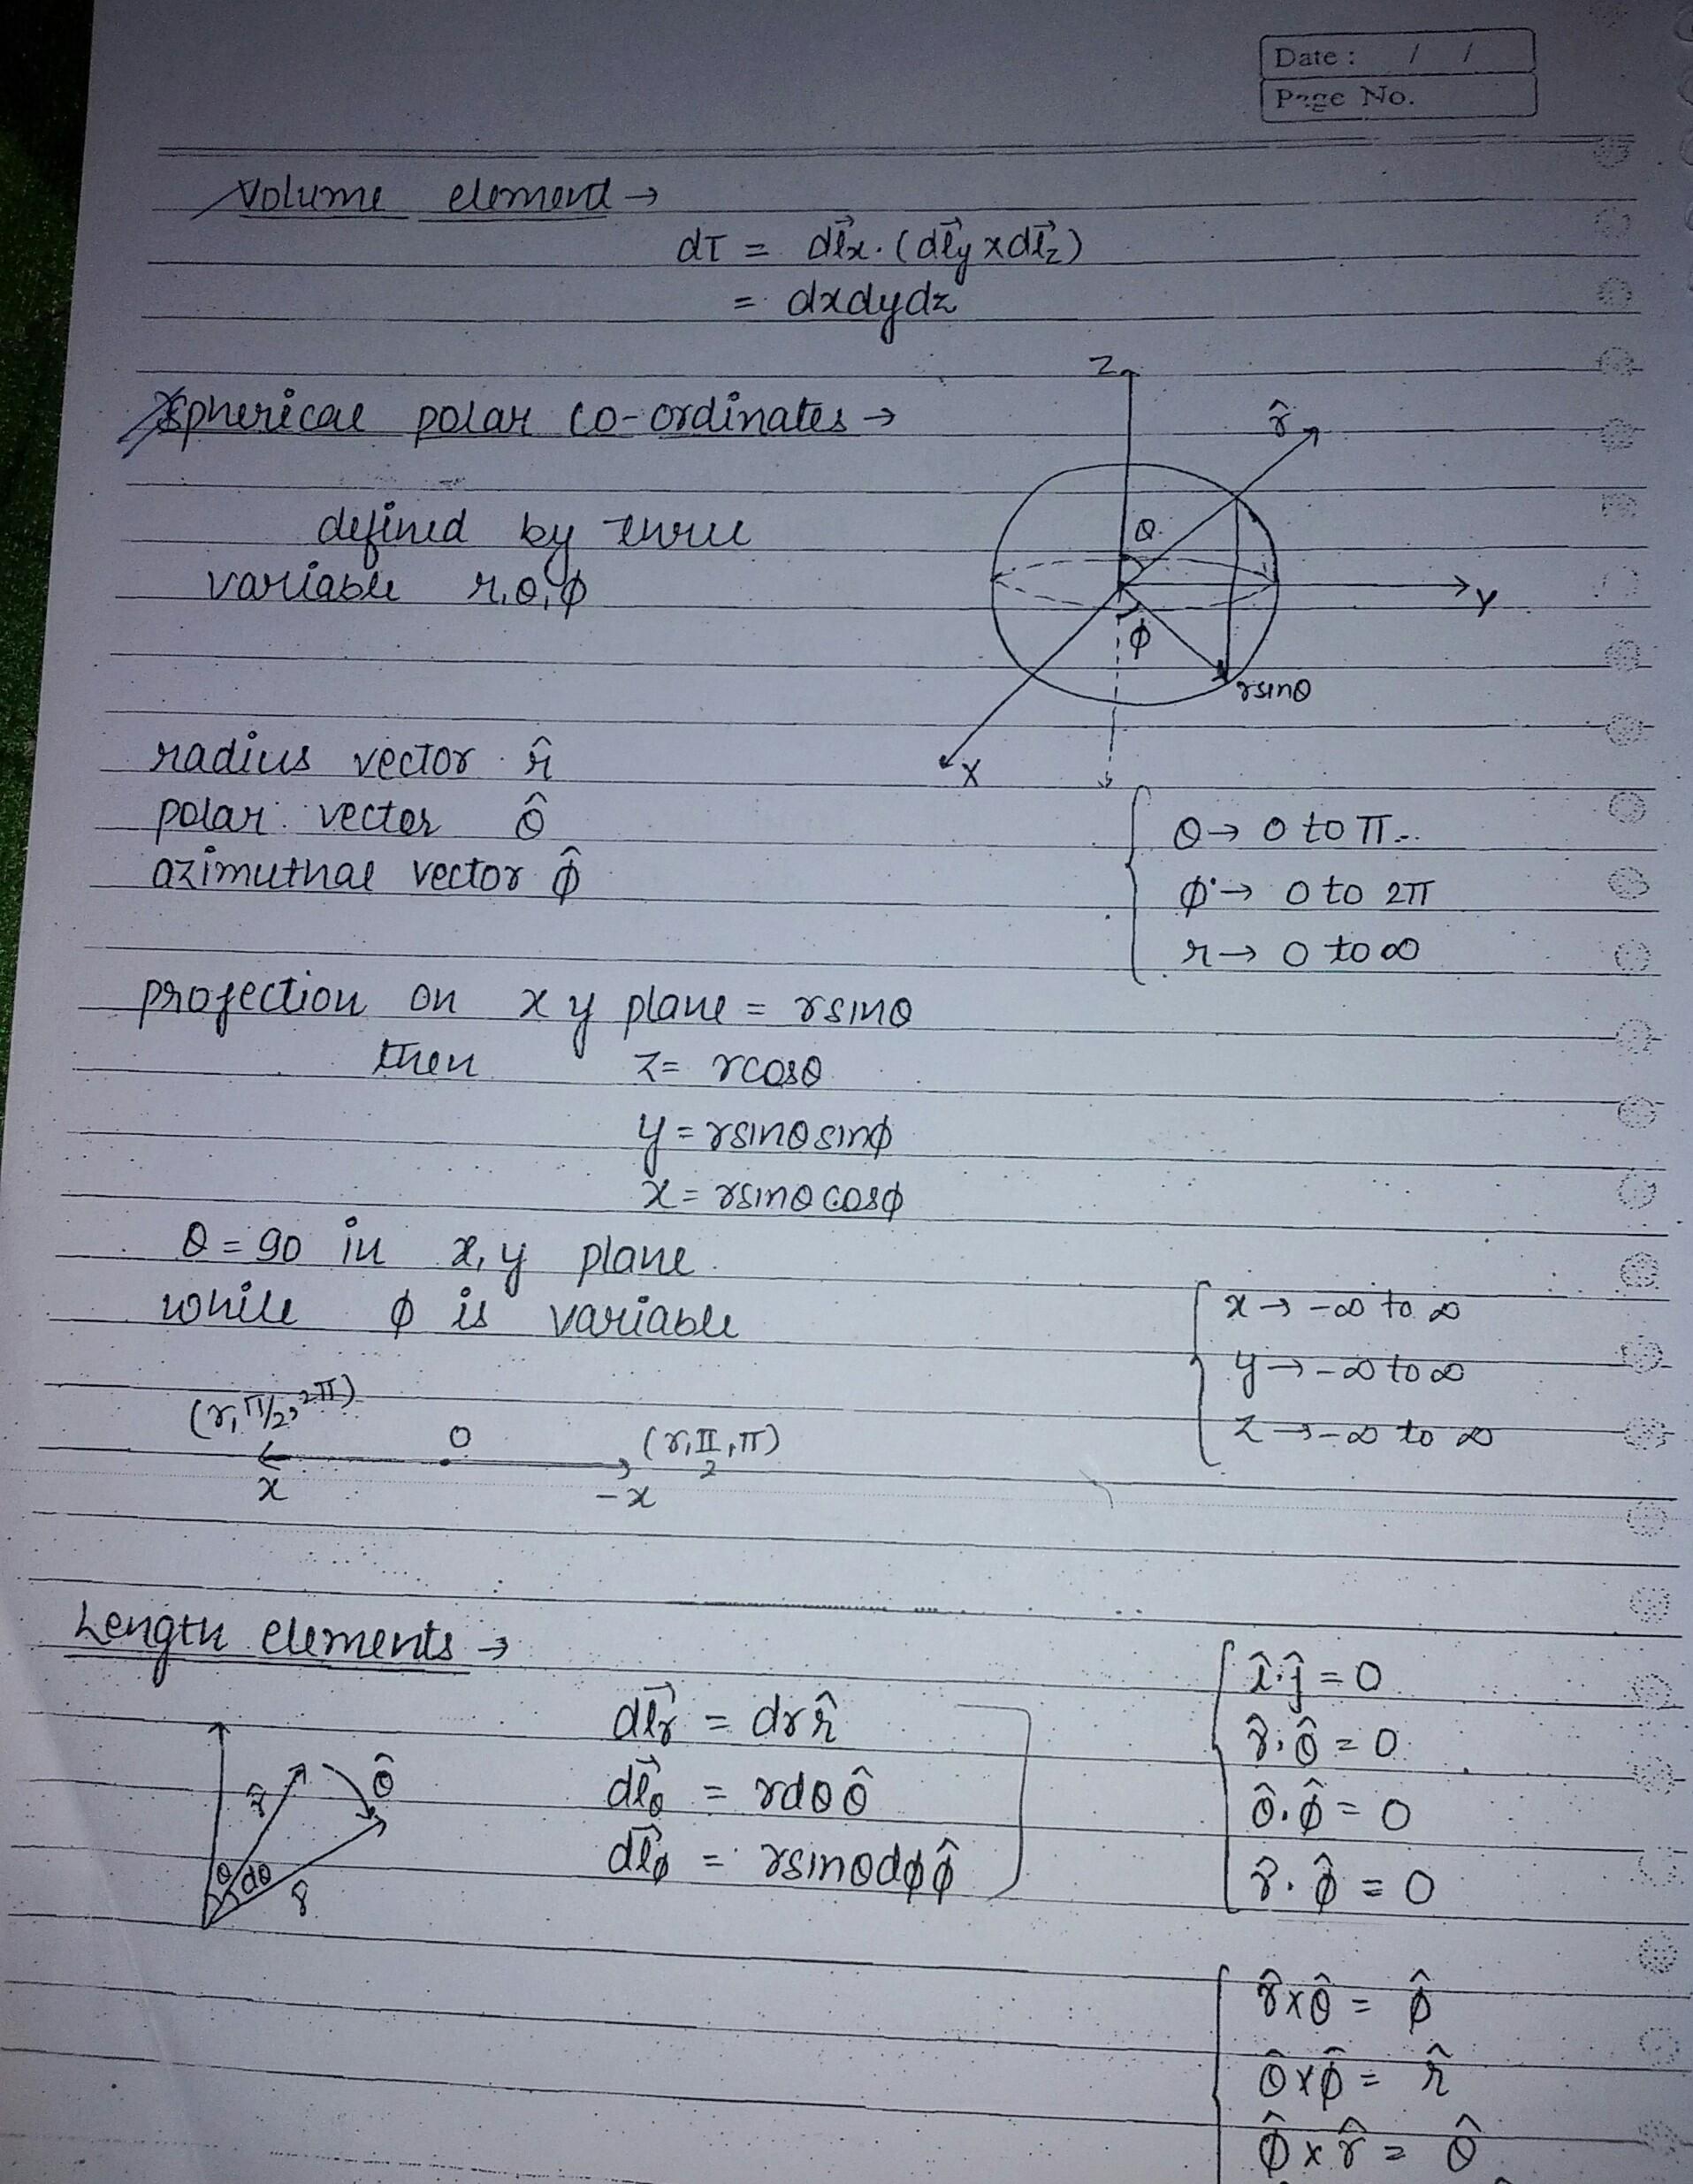 Date : / /
Page No.
Volume element →
dτ = dl⃗x . (dl⃗y x dl⃗z)
= dxdydz
Spherical polar co-ordinates →
Z
r̂
θ
Y
ϕ
rsinθ
X
defined by three
variable r, θ, ϕ
radius vector r̂
polar vector θ̂
azimuthal vector ϕ̂
θ → 0 to π
ϕ → 0 to 2π
r → 0 to ∞
projection on x y plane = rsinθ
then z = rcosθ
y = rsinθ sinϕ
x = rsinθ cosϕ
θ = 90 in x, y plane
while ϕ is variable
x → -∞ to ∞
y → -∞ to ∞
z → -∞ to ∞
(r, π/2, 2π)
O
(r, π/2, π)
x
-x
Length elements →
dl⃗r = dr r̂
dl⃗θ = rdθ θ̂
dl⃗ϕ = rsinθdϕ ϕ̂
r̂
θ̂
θ
dθ
r̂
î.ĵ = 0
r̂.θ̂ = 0
θ̂.ϕ̂ = 0
r̂.ϕ̂ = 0
r̂ x θ̂ = ϕ̂
θ̂ x ϕ̂ = r̂
ϕ̂ x r̂ = θ̂